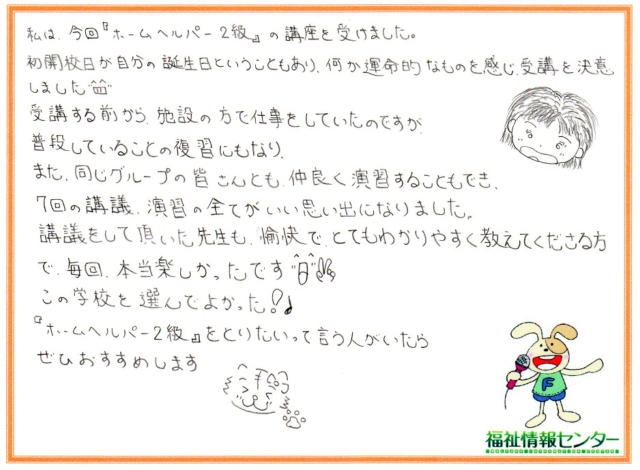 私は、今回『ホームヘルパー2級』の講座を受けました。
初開校日が自分の誕生日ということもあり、何か運命的なものを感じ、受講を決意
しました
受講する前から、施設の方で仕事をしていたのですが、
普段していることの復習にもなり、
また、同じグループの皆さんとも、仲良く演習することもでき、
7回の講議、演習の全てがいい思い出になりました。
講議をして頂いた先生も、愉快で、とてもわかりやすく教えてくださる方
で、毎回、本当楽しかったです
この学校を選んでよかった!♪
『ホームヘルパー2級』をとりたいって言う人がいたら
ぜひおすすめします
F
福祉情報センター